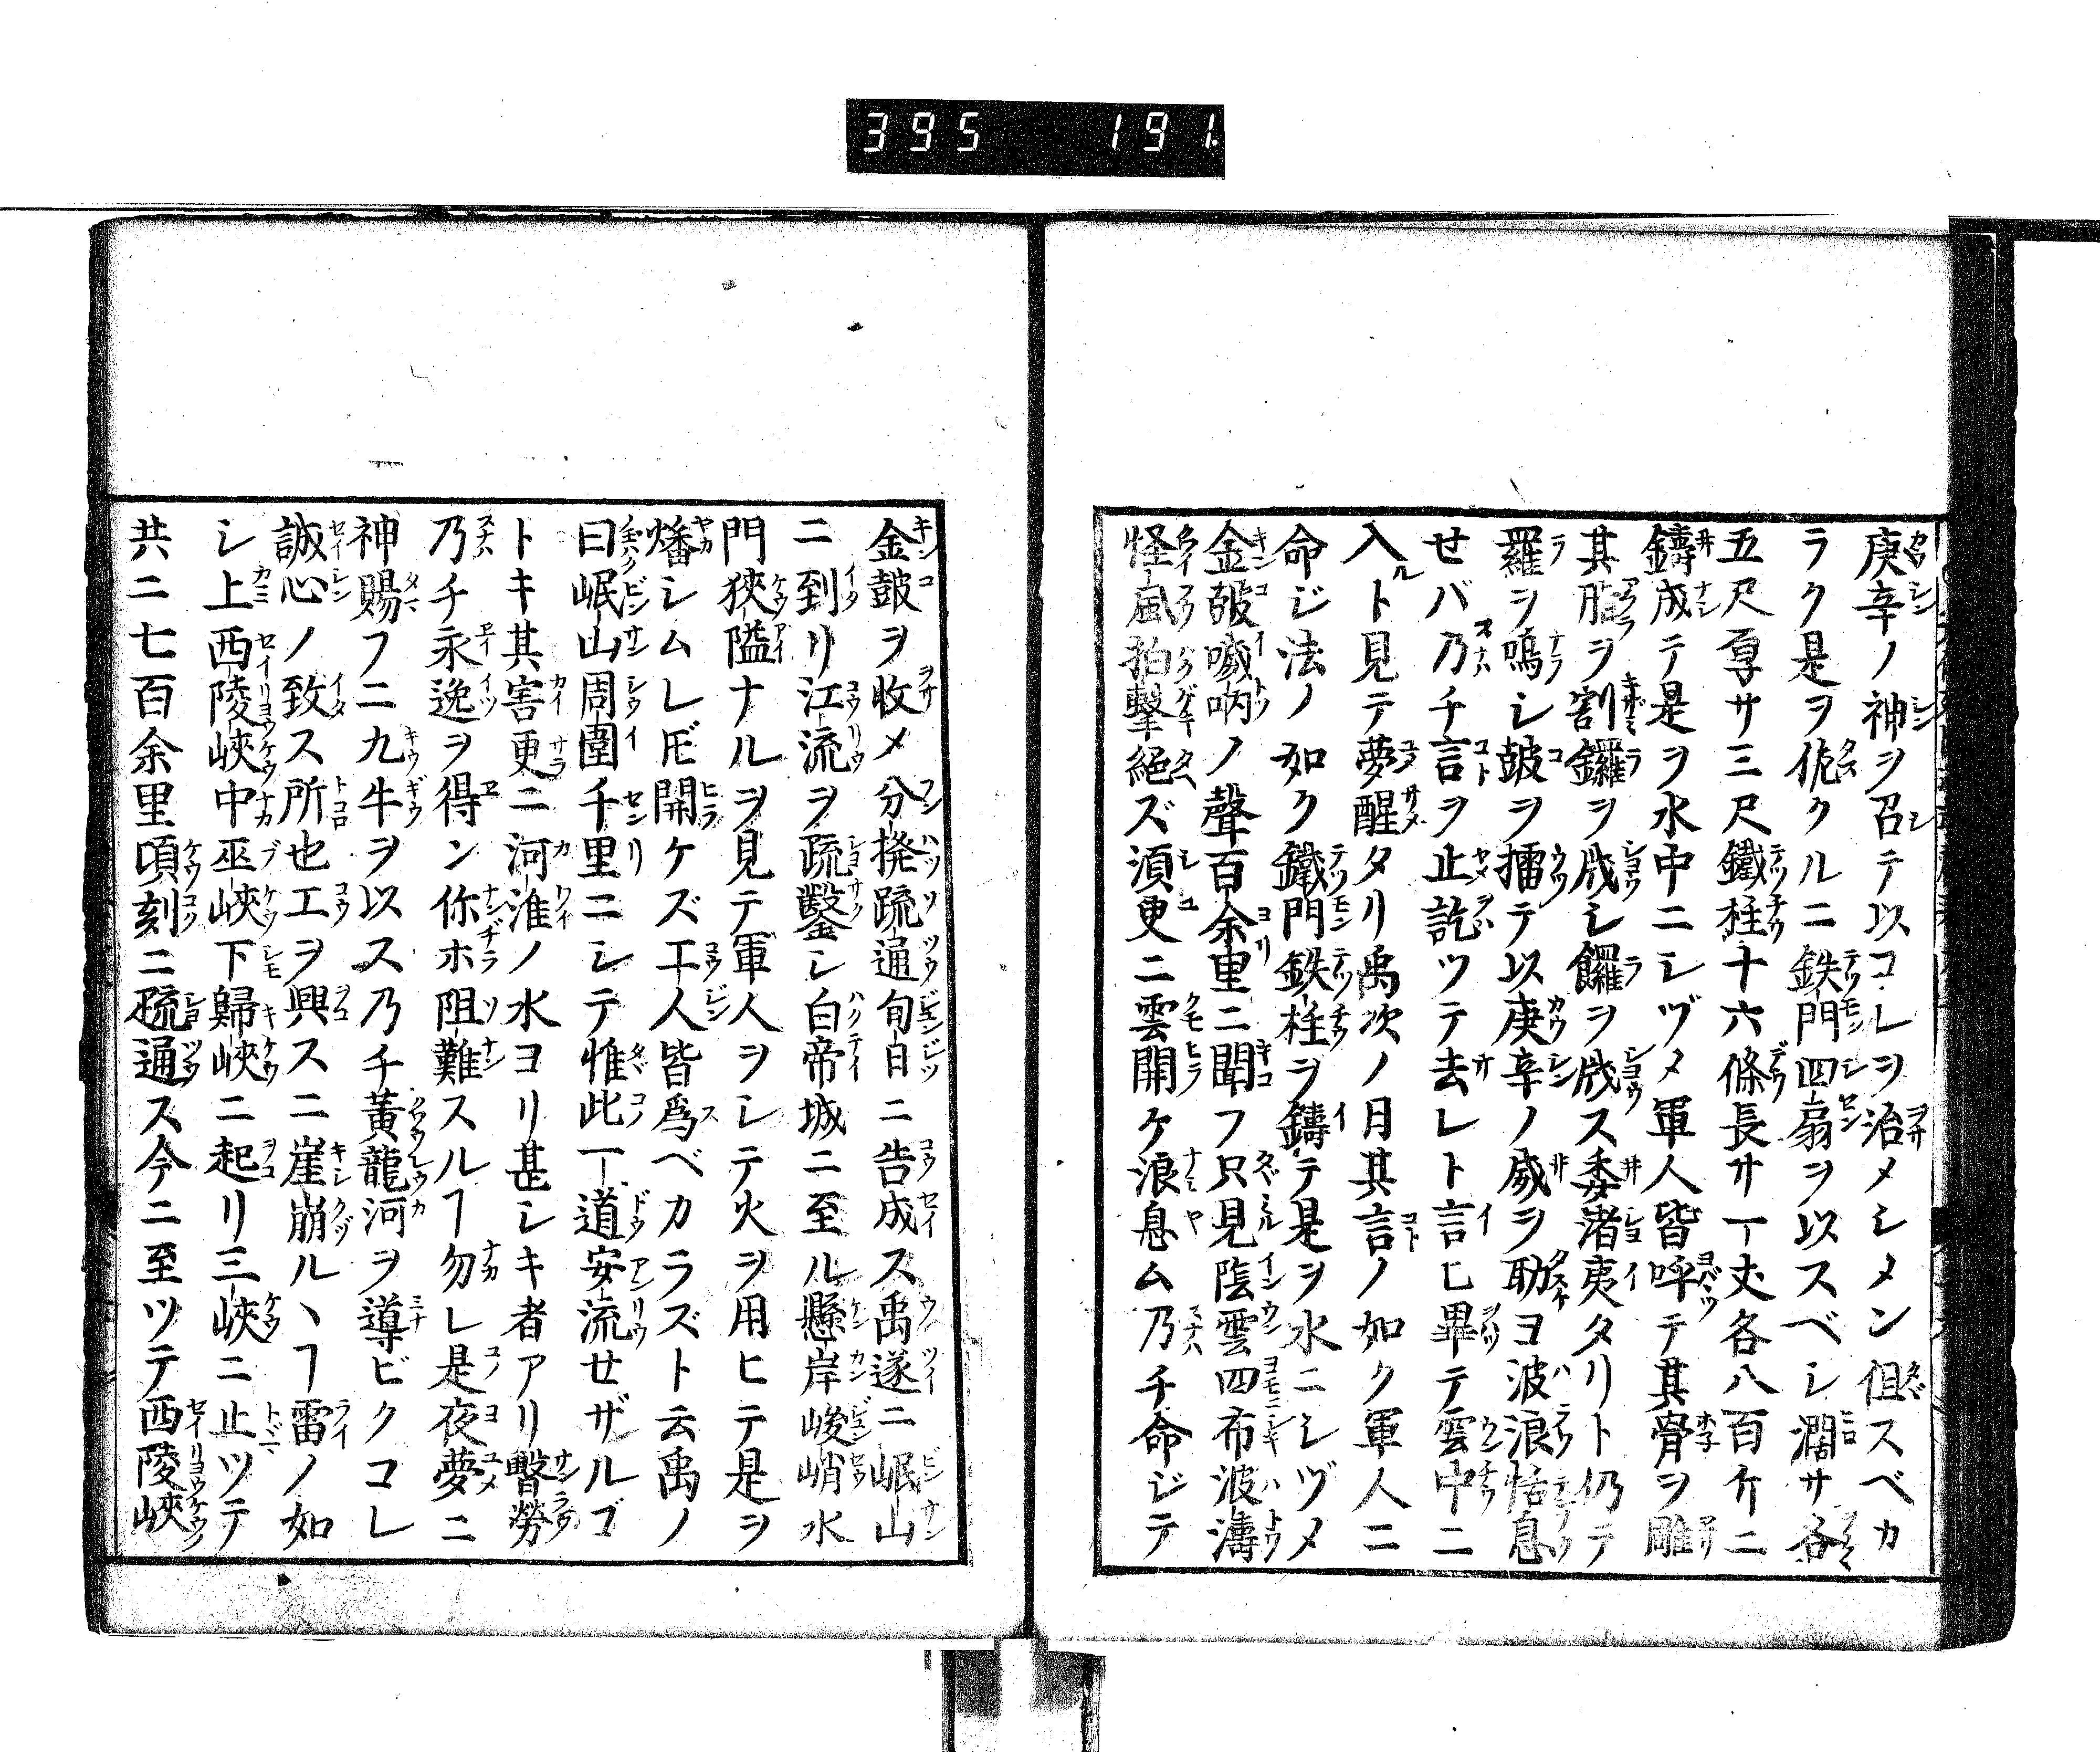 395 191
庚辛ノ神ヲ召テ以コレヲ治メシメン但スベカ
ラク是ヲ佐クルニ鉄門四扇ヲ以スベシ濶サ各
五尺厚サ三尺鐵柱十六條長サ一丈各八百斤ニ
鑄成テ是ヲ水中ニシヅメ軍人皆呼テ其膏ヲ雕
其脂ヲ割鑼ヲ成シ饠ヲ成ス委渚夷タリト仍テ
羅ヲ鳴シ皷ヲ擂テ以庚辛ノ威ヲ助ヨ波浪恬息
セバ乃チ言ヲ止訖ツテ去レト言ヒ畢テ雲中ニ
入ルト見テ夢醒タリ禹次ノ月其言ノ如ク軍人ニ
命ジ法ノ如ク鐵門鉄柱ヲ鑄テ是ヲ水ニシヅメ
金皷喊吶ノ聲百余里ニ聞フ只見陰雲四布波濤
怪風拍擊絕ズ須更ニ雲開ケ浪息ム乃チ命ジテ
金皷ヲ收メ分撥疏通旬日ニ告成ス禹遂ニ岷山
ニ到リ江流ヲ疏鑿シ白帝城ニ至ル懸岸峻峭水
門狹隘ナルヲ見テ軍人ヲシテ火ヲ用ヒテ是ヲ
燔シムレ𪜈開ケズ工人皆爲ベカラズト云禹ノ
曰岷山周圍千里ニシテ惟此一道安流セザルゴ
トキ其害更ニ河淮ノ水ヨリ甚シキ者アリ暫勞
乃チ永逸ヲ得ン你ホ阻難スルヿ勿レ是夜夢ニ
神賜フニ九牛ヲ以ス乃チ黃龍河ヲ導ビクコレ
誠心ノ致ス所也工ヲ興スニ崖崩ルヽヿ雷ノ如
シ上西陵峽中巫峽下歸峽ニ起リ三峽ニ止ツテ
共ニ七百余里頃刻ニ疏通ス今ニ至ツテ西陵峽